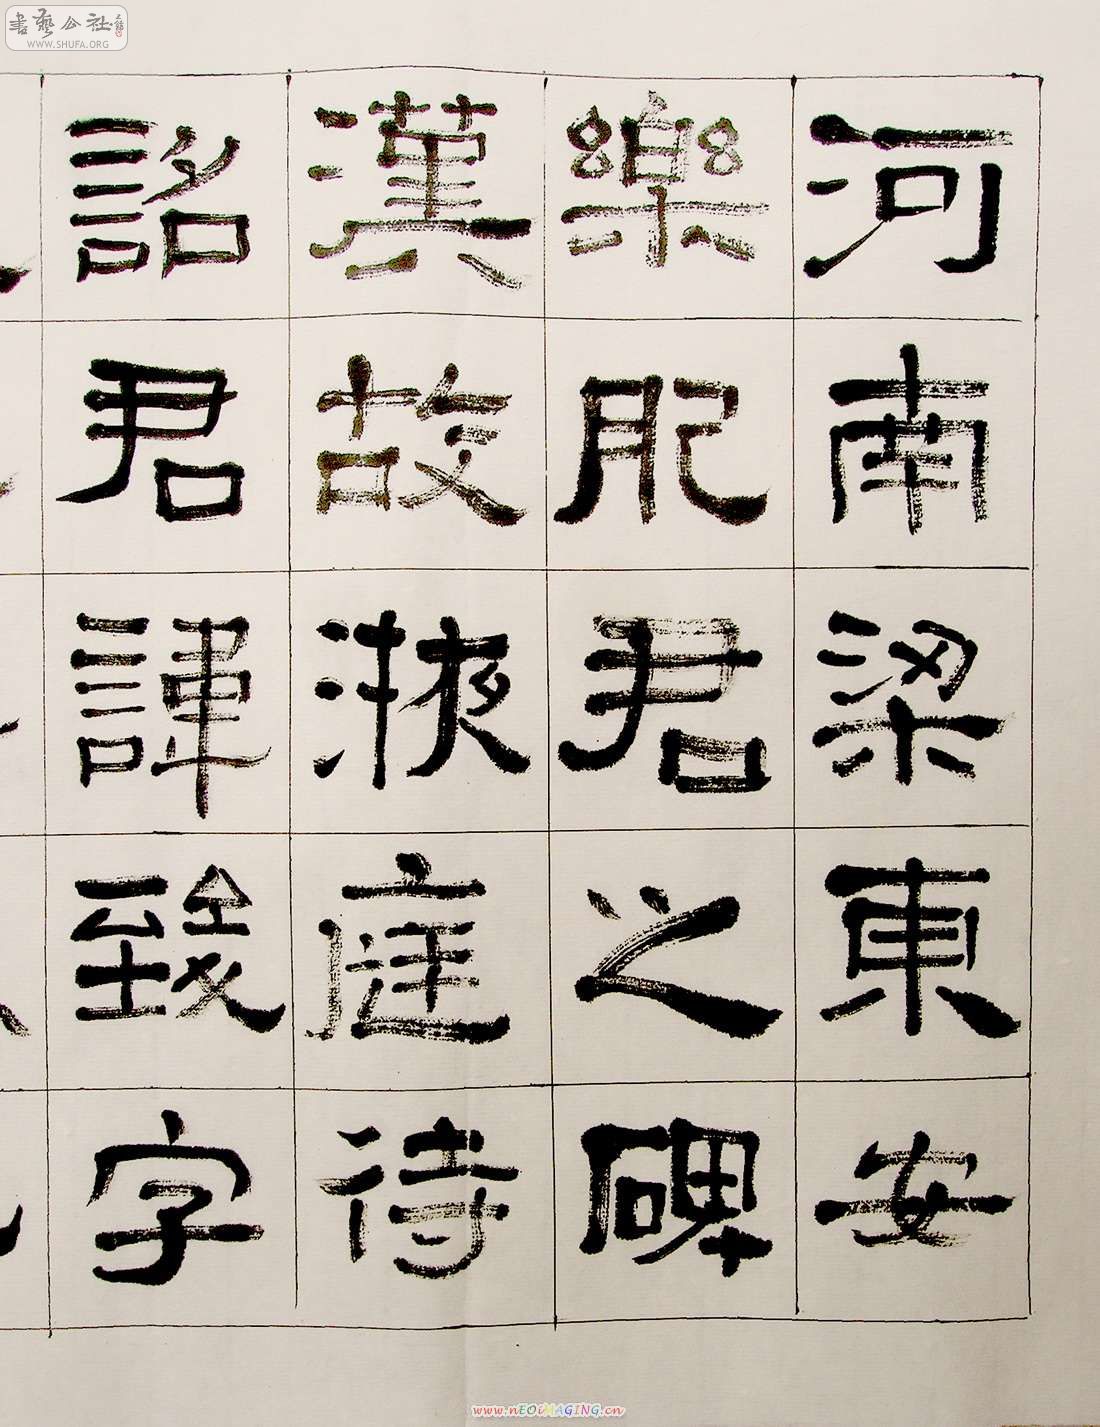 書藝公社
WWW.SHUFA.ORG
河南梁東安
樂肥君之碑
漢故掖庭待
詔君諱致字
www.nEOiMAGING.cn